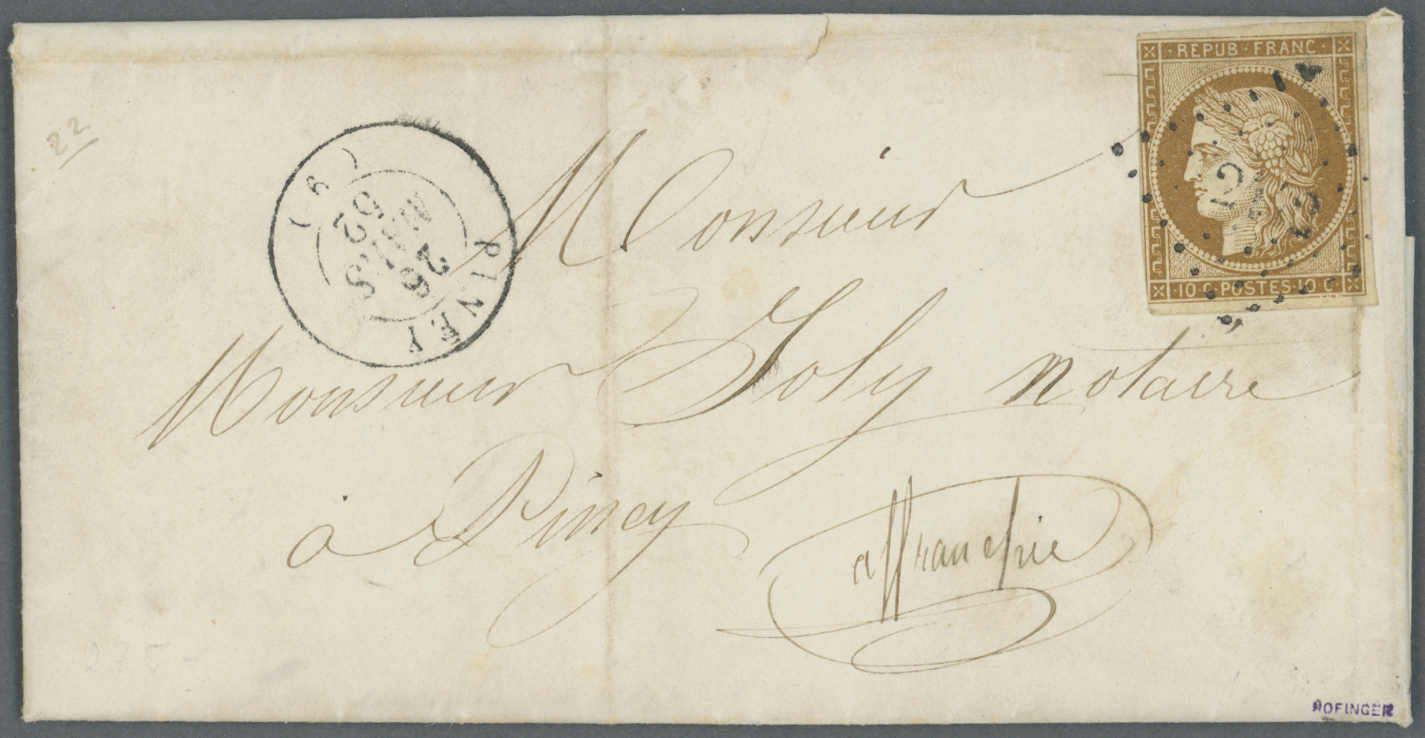 REPUB·FRANC·
10 C·POSTES·10 C
22
PINEY
26
MARS
52
(9)
Monsieur
Monsieur Joly notaire
à Piney
affranchie
HOFINGER